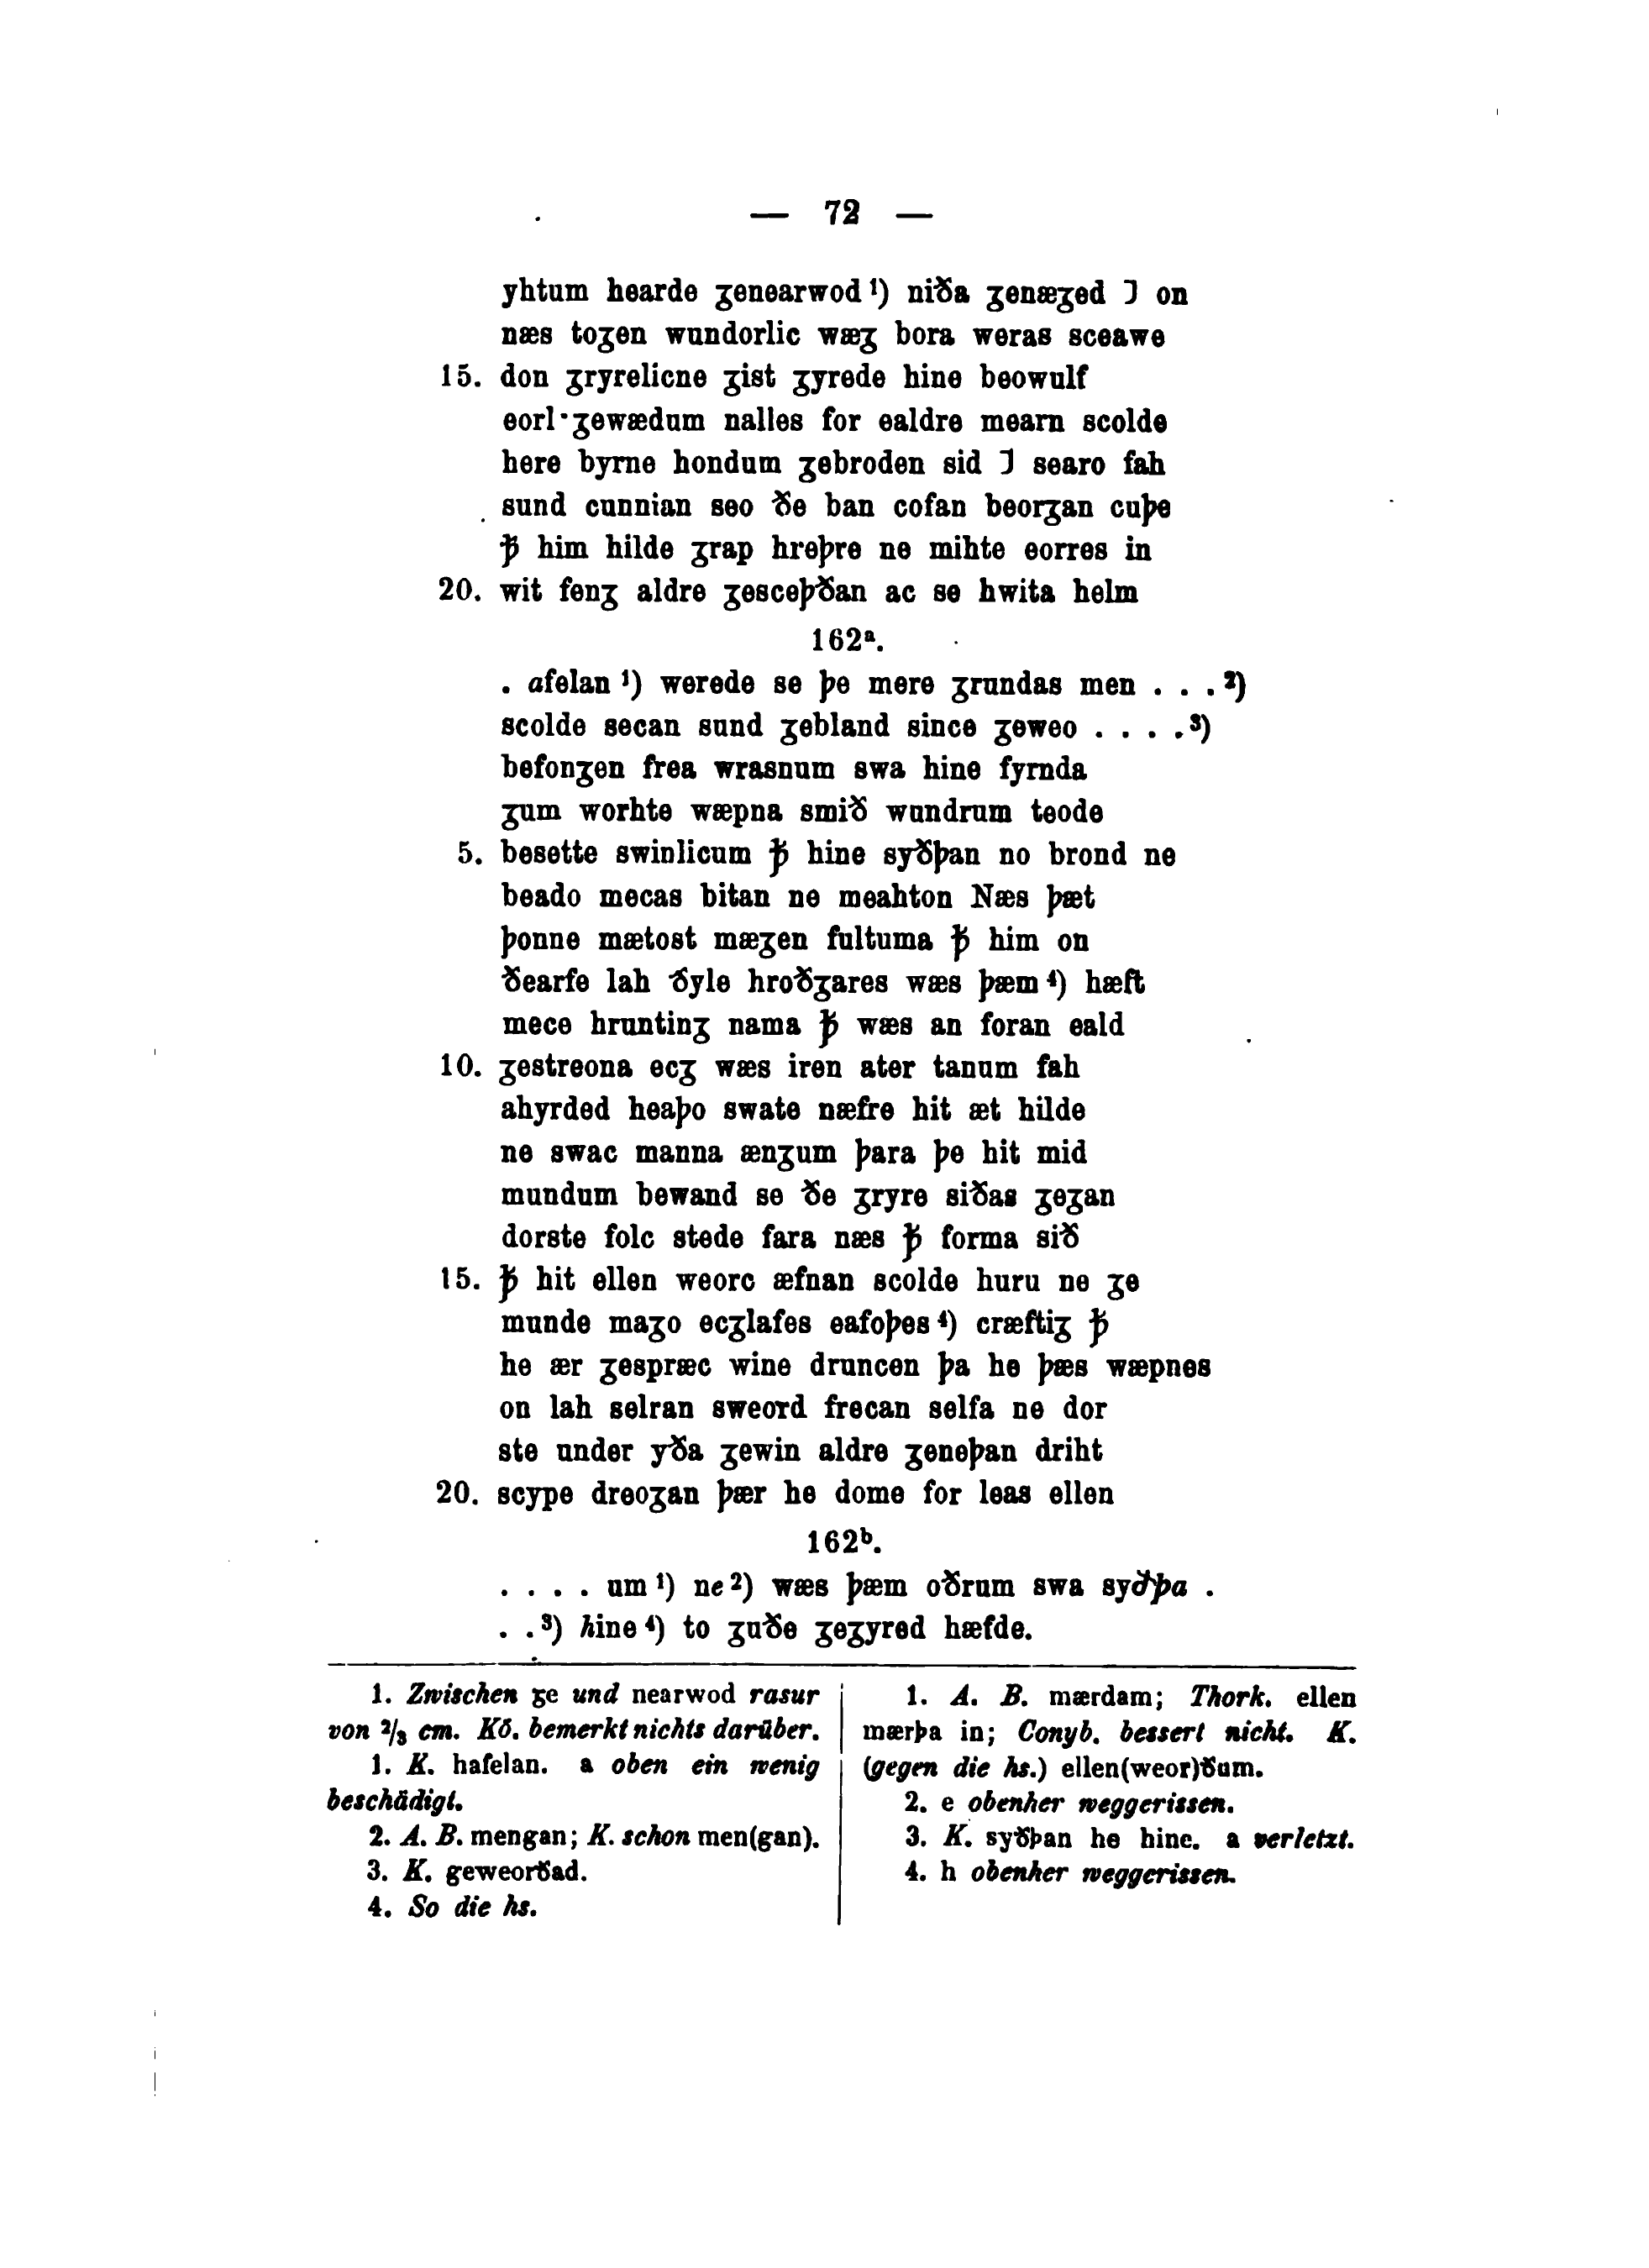 — 72 —
yhtum hearde ʒenearwod ¹) niða ʒenæʒed ⁊ on
næs toʒen wundorlic wæʒ bora weras sceawe
15. don ʒryrelicne ʒist ʒyrede hine beowulf
eorl·ʒewædum nalles for ealdre mearn scolde
here byrne hondum ʒebroden sid ⁊ searo fah
sund cunnian seo ðe ban cofan beorʒan cuþe
ꝥ him hilde ʒrap hreþre ne mihte eorres in
20. wit fenʒ aldre ʒesceþðan ac se hwita helm
162ª.
. afelan ¹) werede se þe mere ʒrundas men . . . ²)
scolde secan sund ʒebland since ʒeweo . . . . ³)
befonʒen frea wrasnum swa hine fyrnda
ʒum worhte wæpna smið wundrum teode
5. besette swinlicum ꝥ hine syðþan no brond ne
beado mecas bitan ne meahton Næs þæt
þonne mætost mæʒen fultuma ꝥ him on
ðearfe lah ðyle hroðʒares wæs þæm ⁴) hæft
mece hruntinʒ nama ꝥ wæs an foran eald
10. ʒestreona ecʒ wæs iren ater tanum fah
ahyrded heaþo swate næfre hit æt hilde
ne swac manna ænʒum þara þe hit mid
mundum bewand se ðe ʒryre siðas ʒeʒan
dorste folc stede fara næs ꝥ forma sið
15. ꝥ hit ellen weorc æfnan scolde huru ne ʒe
munde maʒo ecʒlafes eafoþes ⁴) cræftiʒ ꝥ
he ær ʒespræc wine druncen þa he þæs wæpnes
on lah selran sweord frecan selfa ne dor
ste under yða ʒewin aldre ʒeneþan driht
20. scype dreoʒan þær he dome for leas ellen
162ᵇ.
. . . . um ¹) ne ²) wæs þæm oðrum swa syðþa .
. . ³) hine ⁴) to ʒuðe ʒeʒyred hæfde.
1. Zwischen ʒe und nearwod rasur
von ²/₃ cm. Kö. bemerkt nichts darüber.
1. K. hafelan. a oben ein wenig
beschädigt.
2. A. B. mengan; K. schon men(gan).
3. K. geweorðad.
4. So die hs.
1. A. B. mærdam; Thork. ellen
mærþa in; Conyb. bessert nicht. K.
(gegen die hs.) ellen(weor)ðum.
2. e obenher weggerissen.
3. K. syðþan he hine. a verletzt.
4. h obenher weggerissen.